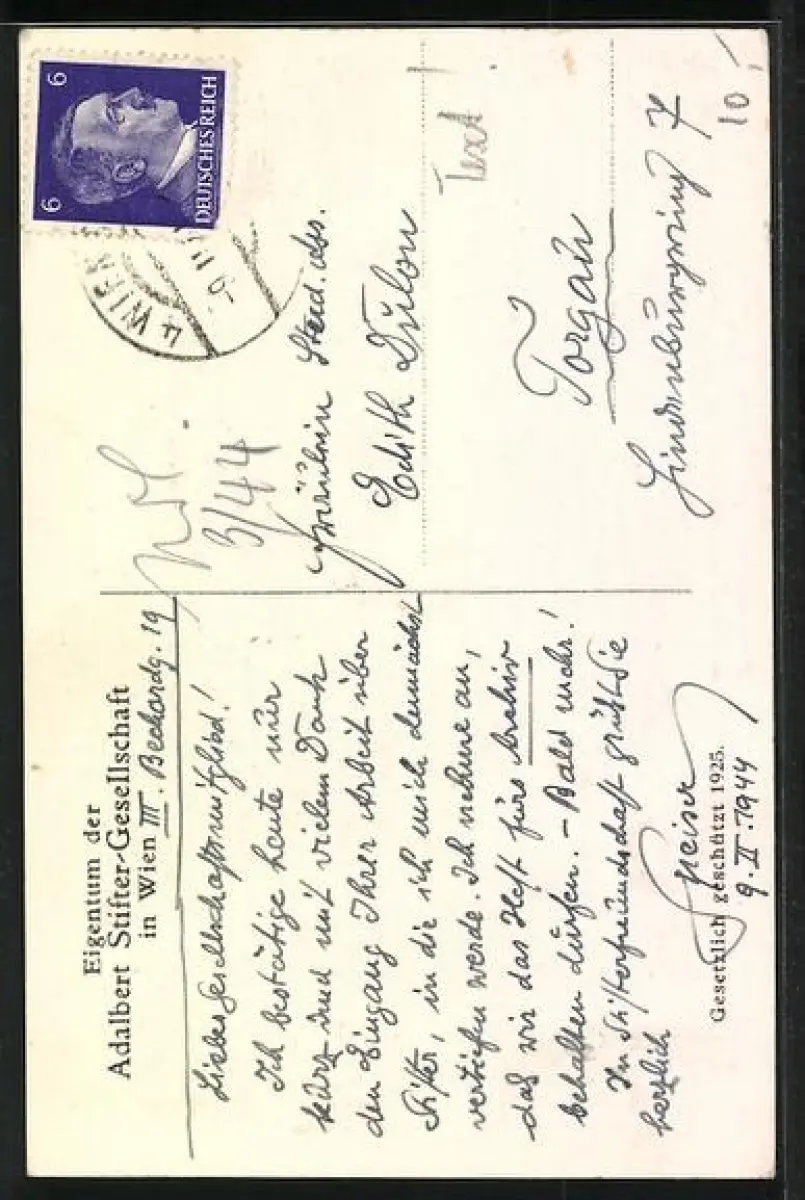 Eigentum der
Adalbert Stifter-Gesellschaft
in Wien III. Bechardg. 19
Liebes Gesellschaftsmitglied!
Ich bestätige heute nur
kurz und mit vielem Dank
den Eingang Ihrer Arbeit über
Stifter, in die ich mich demnächst
vertiefen werde. Ich nehme an,
daß wir das Heft fürs Archiv
behalten dürfen. – Bald mehr!
In Stifterfreundschaft grüßt Sie
herzlich
Gesetzlich geschützt 1925.
9. II. 1944
6 6
DEUTSCHES REICH
4 WIEN
-9.II
3/44
Fräulein Stud. Ass.
Edith Dulon
Text!
Torgau
Hindenburgring 7
10,-